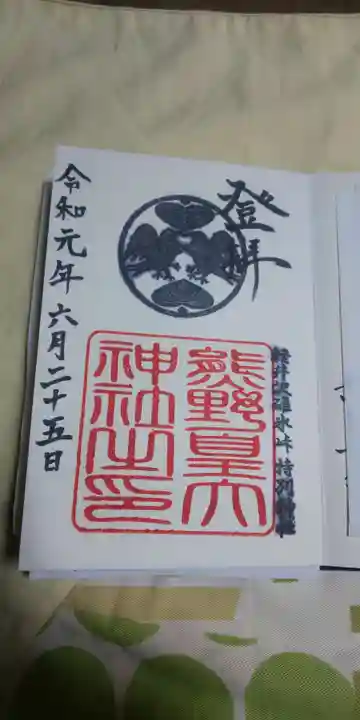 登拝
軽井沢碓氷峠 特別神社
熊野皇大
神社之印
令和元年六月二十五日